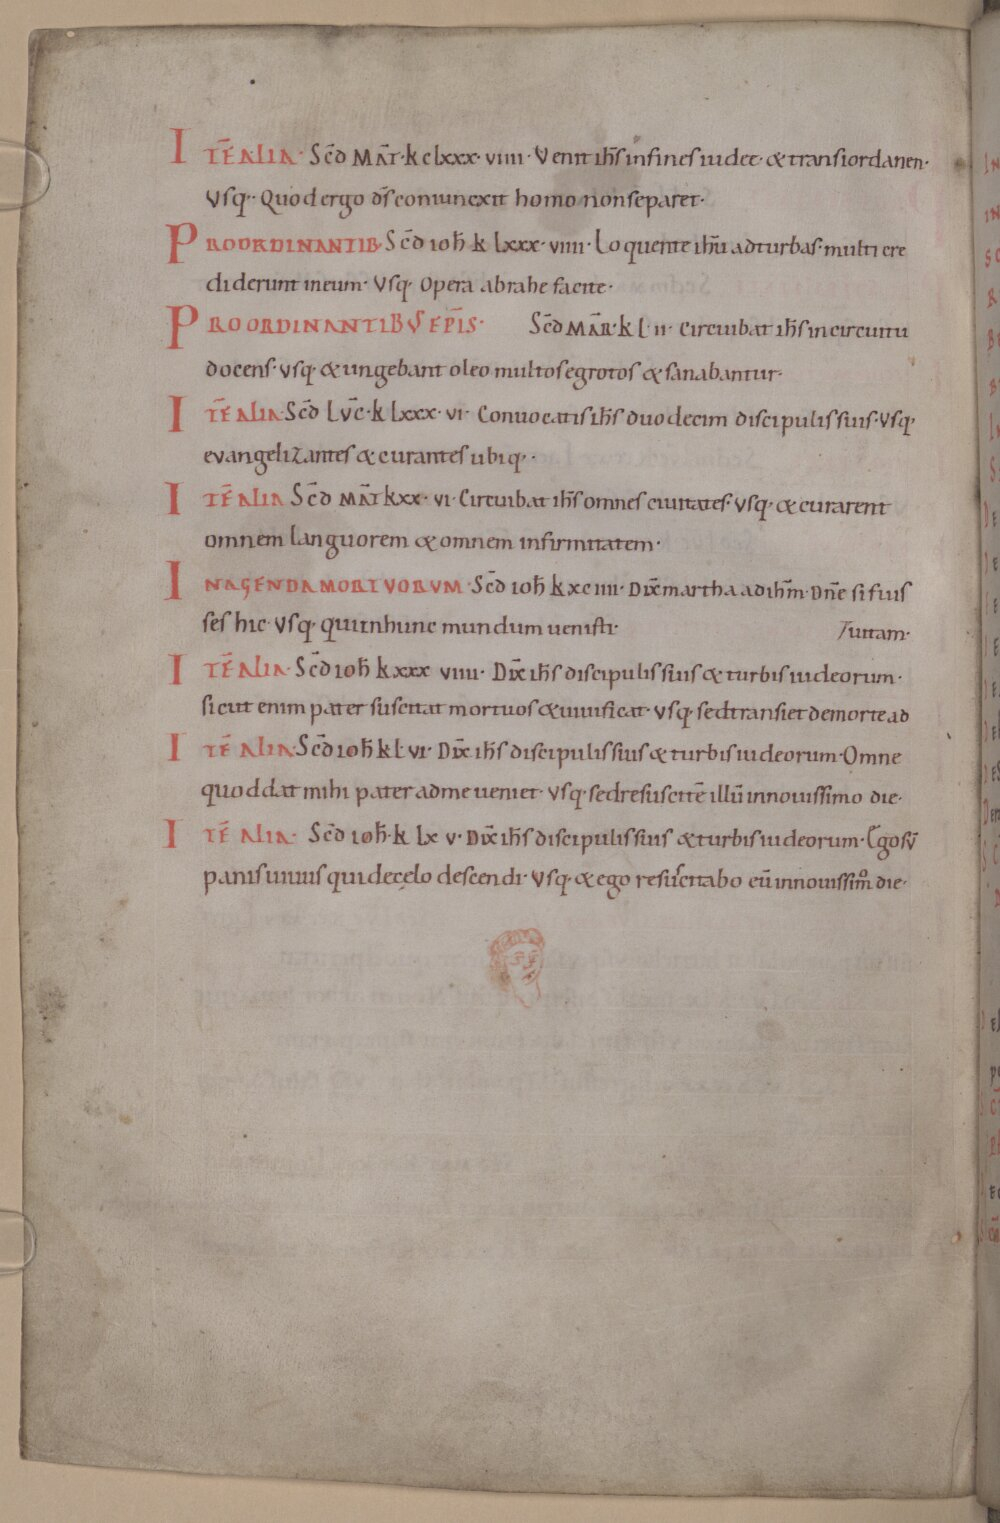 ITE᷆ ALIA· Sc̄d MAR̄· k clxxx· viiii· Venit ihs̄ in fines iudee· & transiordanen·
Vsq·· Quod ergo ds̄ coniunexit homo non separet·
PRO ORDINANTIB· Sc̄d ioh̄ k lxxx· viiii· Loquente ihū ad turbas· multi cre
diderunt in eum· Vsq· Opera abrahe facite·
PRO ORDINANTIBUS EPĪS· Sc̄d MAR̄· k l· ii· Circuibat ihs̄ in circuitu
docens· vsq· & ungebant oleo multos egrotos & sanabantur·
ITE᷆ ALIA Sc̄d LVC̄· k lxxx· vi· Convocatis ihs̄ duodecim discipulis suis· Vsq·
evangelizantes & curantes ubiq··
ITE᷆ ALIA Sc̄d MAT̄ k xx· vi· Circuibat ihs̄ omnes civitates· Vsq· & curarent
omnem languorem & omnem infirmitatem·
IN AGENDA MORTVORVM· Sc̄d ioh̄ k xc iiii· Dix̄ martha ad ihm̄· Dn̄e si fuis
ses hic· Vsq· qui in hunc mundum uenisti·
/uitam·
ITE᷆ ALIA· Sc̄d ioh̄ k xxx viiii· Dix̄ ihs̄ discipulis suis & turbis iudeorum·
sicut enim pater suscitat mortuos & uiuificat· Vsq· sed transiet de morte ad
ITE᷆ ALIA· Sc̄d ioh̄ k l· vi· Dix̄ ihs̄ discipulis suis & turbis iudeorum· Omne
quod dat mihi pater ad me ueniet· Vsq· sed resuscitē illū in novissimo die·
ITE᷆ ALIA· Sc̄d ioh̄· k lx v· Dix̄ ihs̄ discipulis suis & turbis iudeorum· Ego sū
panis uiuus qui de cęlo descendi· Vsq· & ego resuscitabo eū in novissimo die·